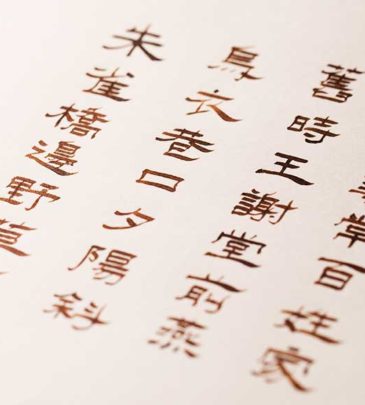 朱雀橋邊野草
烏衣巷口夕陽斜
舊時王謝堂前燕
常百姓家